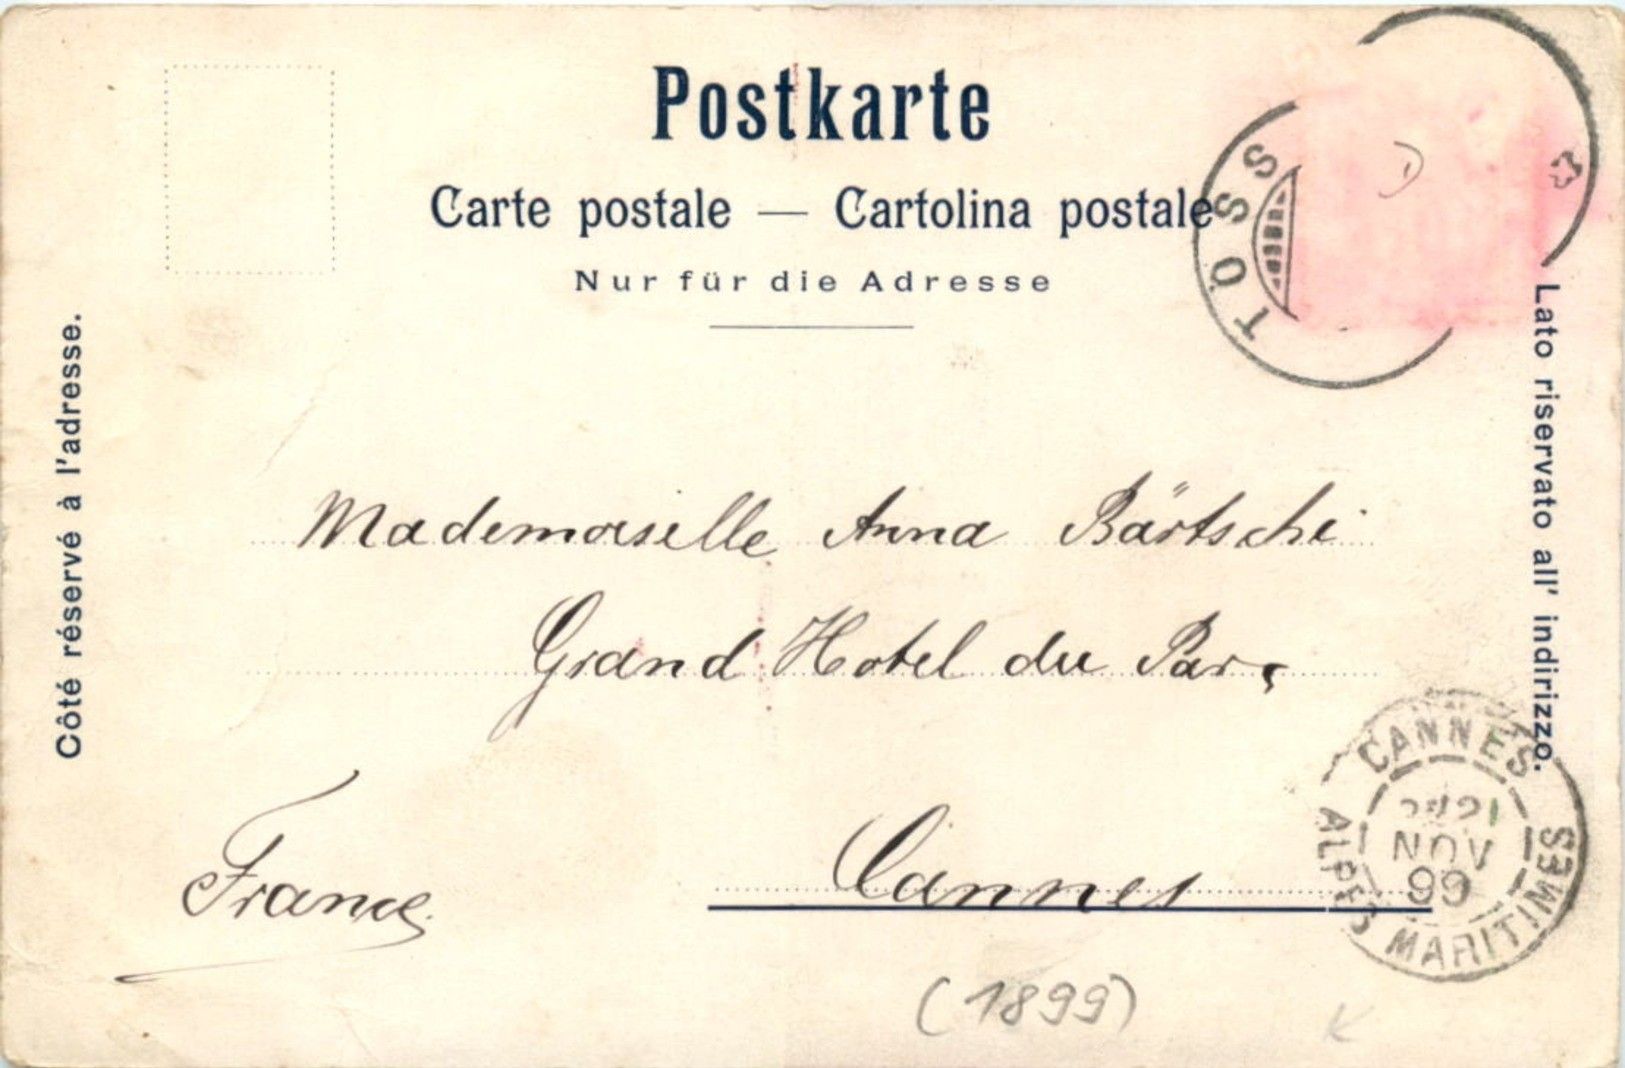 Postkarte
Carte postale — Cartolina postale
Nur für die Adresse
Côté réservé à l'adresse.
Lato riservato all' indirizzo.
TÖSS
Mademoiselle Anna Bärtschi
Grand Hotel du Parc
Cannes
France
CANNES
NOV
99
ALPES MARITIMES
(1899)
K